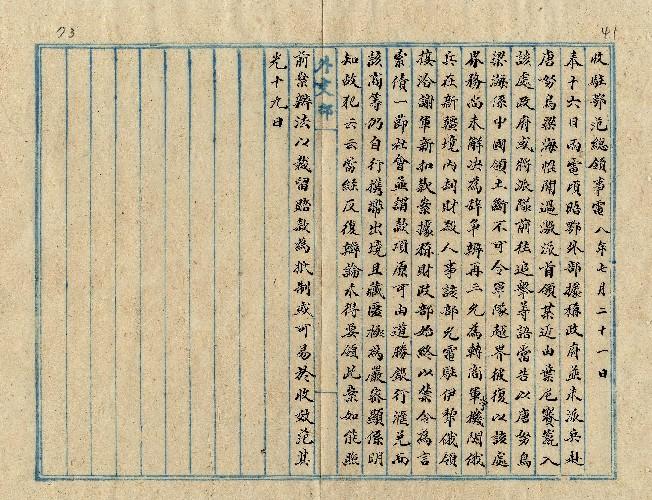 73
41
收駐鄂范總領事電八年七月二十一日
奉十六日兩電頃晤鄂外部據稱政府並未派兵赴
唐努烏梁海惟聞過激派首領某近由葉尼賽竄入
該處政府或將派隊前往追擊等語當告以唐努烏
梁海係中國領土斷不可令軍隊越界彼復以該處
界務尚未解決為辭爭辯再三允為轉商軍機關俄
兵在新疆境內刦財殺人事該部允電駐伊犂俄領
接洽謝軍新扣款案據稱財政部始終以禁令為言
索債一節社會並謂款項原可由道勝銀行滙兌而
該商等仍自行攜帶出境且藏匿極為嚴密顯係明
知故犯云云當經反復辯論未得要領此案如能照
外交部
前案辦法以裁留賠款為抵制或可易於收效范其
光十九日